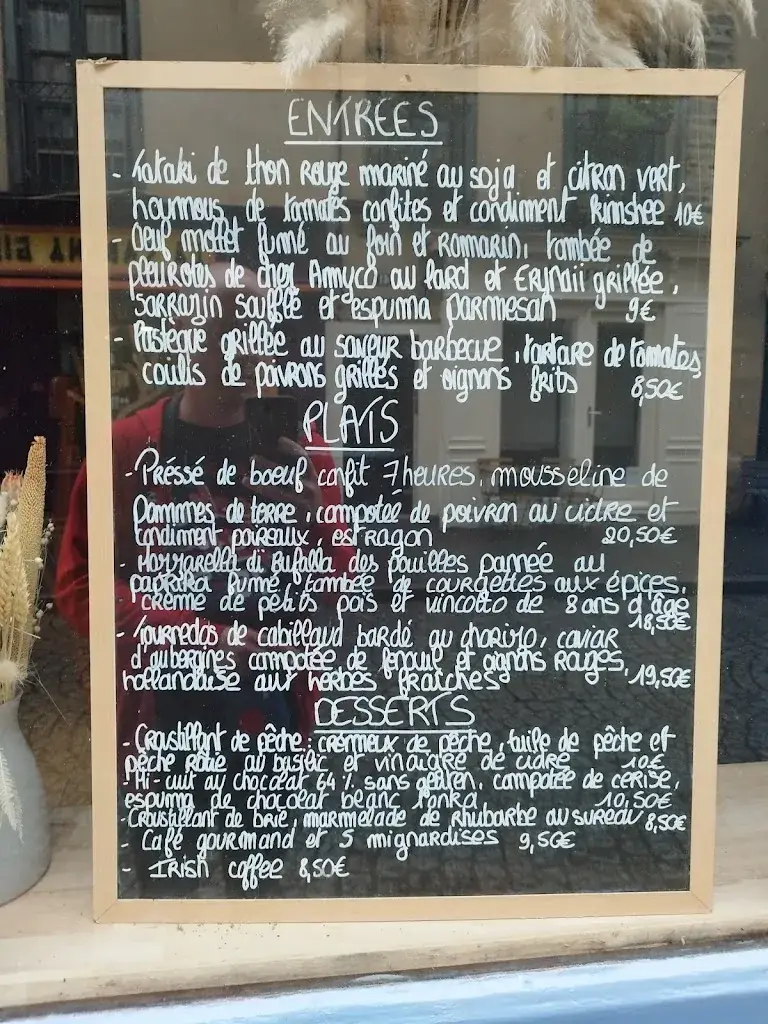 ENTREES
- Tataki de thon rouge mariné au soja et citron vert,
houmous de tomates confites et condiment Kimshee 10€
- Oeuf mollet fumé au foin et Rommarin, tombée de
pleurotes de chez Amyco au lard et Erynaii grillée,
sarrazin soufflé et espuma parmesan 9€
- Pastèque grillée au saveur barbecue, tartare de tomates,
coulis de poivrons grillés et oignons frits 8,50€
PLATS
- Préssé de boeuf confit 7heures, mousseline de
Pommes de terre, compotée de poivron au cidre et
condiment poireaux, estragon 20,50€
- Mozzarella di Buffala des pouilles pannée au
paprika fumé, tombée de courgettes aux épices,
crème de petits pois et vincotto de 8 ans d'âge
18,50€
- Tournedos de cabillaud bardé au chorizo, caviar
d'aubergines compotée de fenouil et oignons rouges,
hollandaise aux herbes fraîches 19,50€
DESSERTS
- Croustillant de pêche: crémeux de pêche, tuile de pêche et
pêche rôtie au basilic et vinaigre de cidre 10€
- Mi-cuit au chocolat 64% sans gluten, compotée de cerise,
espuma de chocolat blanc Tonka 10,50€
- Croustillant de brie, marmelade de rhubarbe au sureau 8,50€
- Café gourmand et 5 mignardises 9,50€
- Irish coffee 8,50€